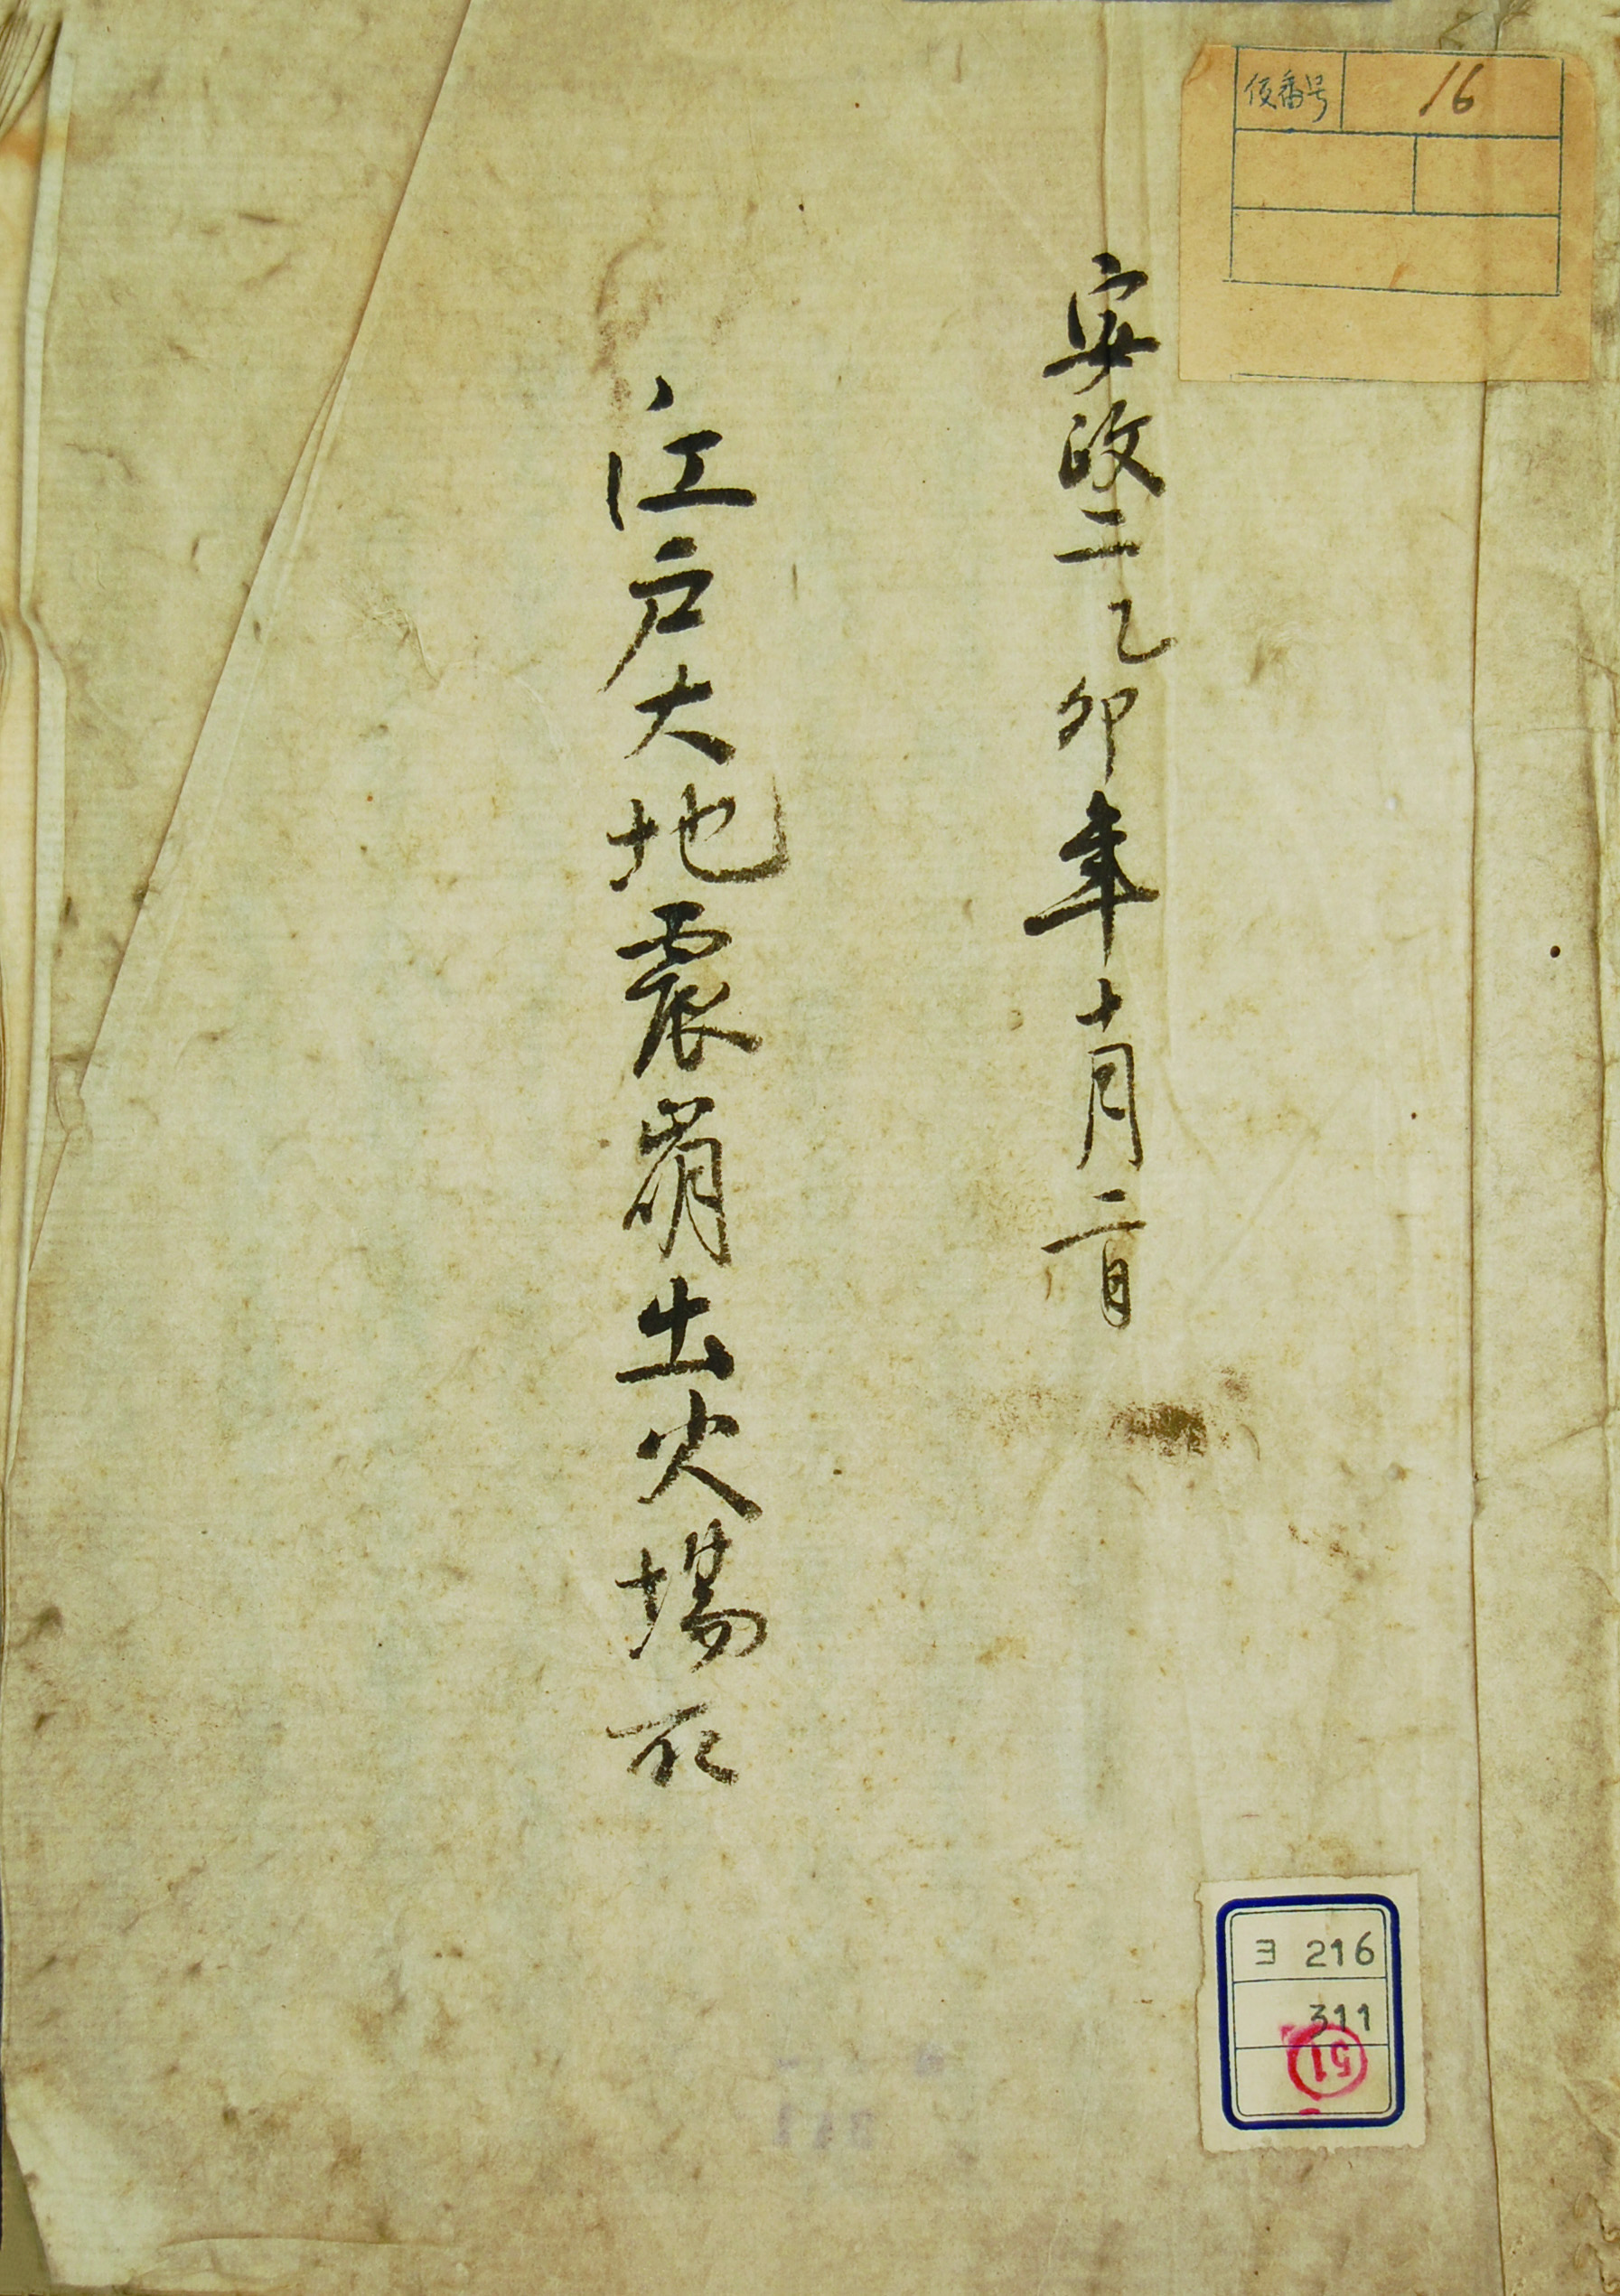 仮番号 16
安政二乙卯年十月二日
江戸大地震崩出火場所
ヨ 216
311
51